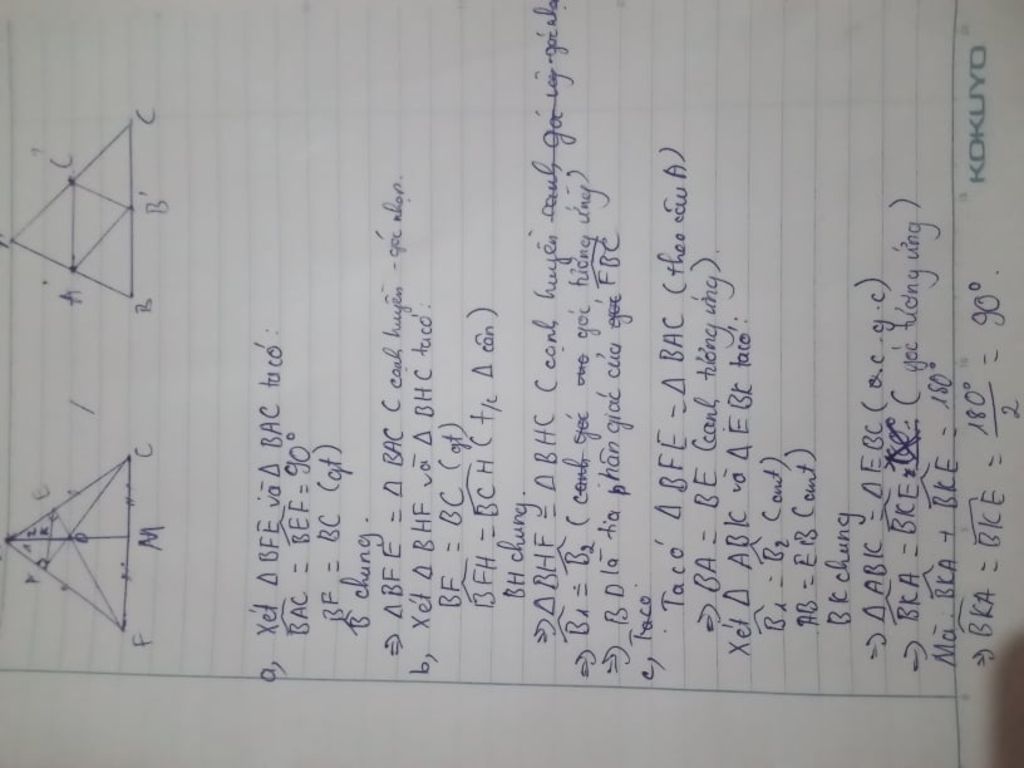 A
B
C
B'
C'
F
M
C
a, Xét Δ BFE và Δ BAC ta có:
BAC = BEF = 90°
BF = BC (gt)
B chung.
=> Δ BFE = Δ BAC ( cạnh huyền - góc nhọn.
b, Xét Δ BHF và Δ BHC ta có:
BF = BC (gt)
BFH = BCH ( t/c Δ cân)
BH chung
=> Δ BHF = Δ BHC ( cạnh huyền
=> B1 = B2 ( góc tương ứng)
=> BD là tia phân giác của FBC
c, Ta có
Ta có Δ BFE = Δ BAC ( theo câu A)
=> BA = BE (cạnh tương ứng)
Xét Δ ABK và Δ EBK ta có:
B1 = B2 (cmt)
AB = EB (cmt)
BK chung
=> Δ ABK = Δ EBC ( a.c.g.c)
=> BKA = BKE ( góc tương ứng)
Mà: BKA + BKE = 180°
=> BKA = BKE = 180° / 2 = 90°.
KOKUYO